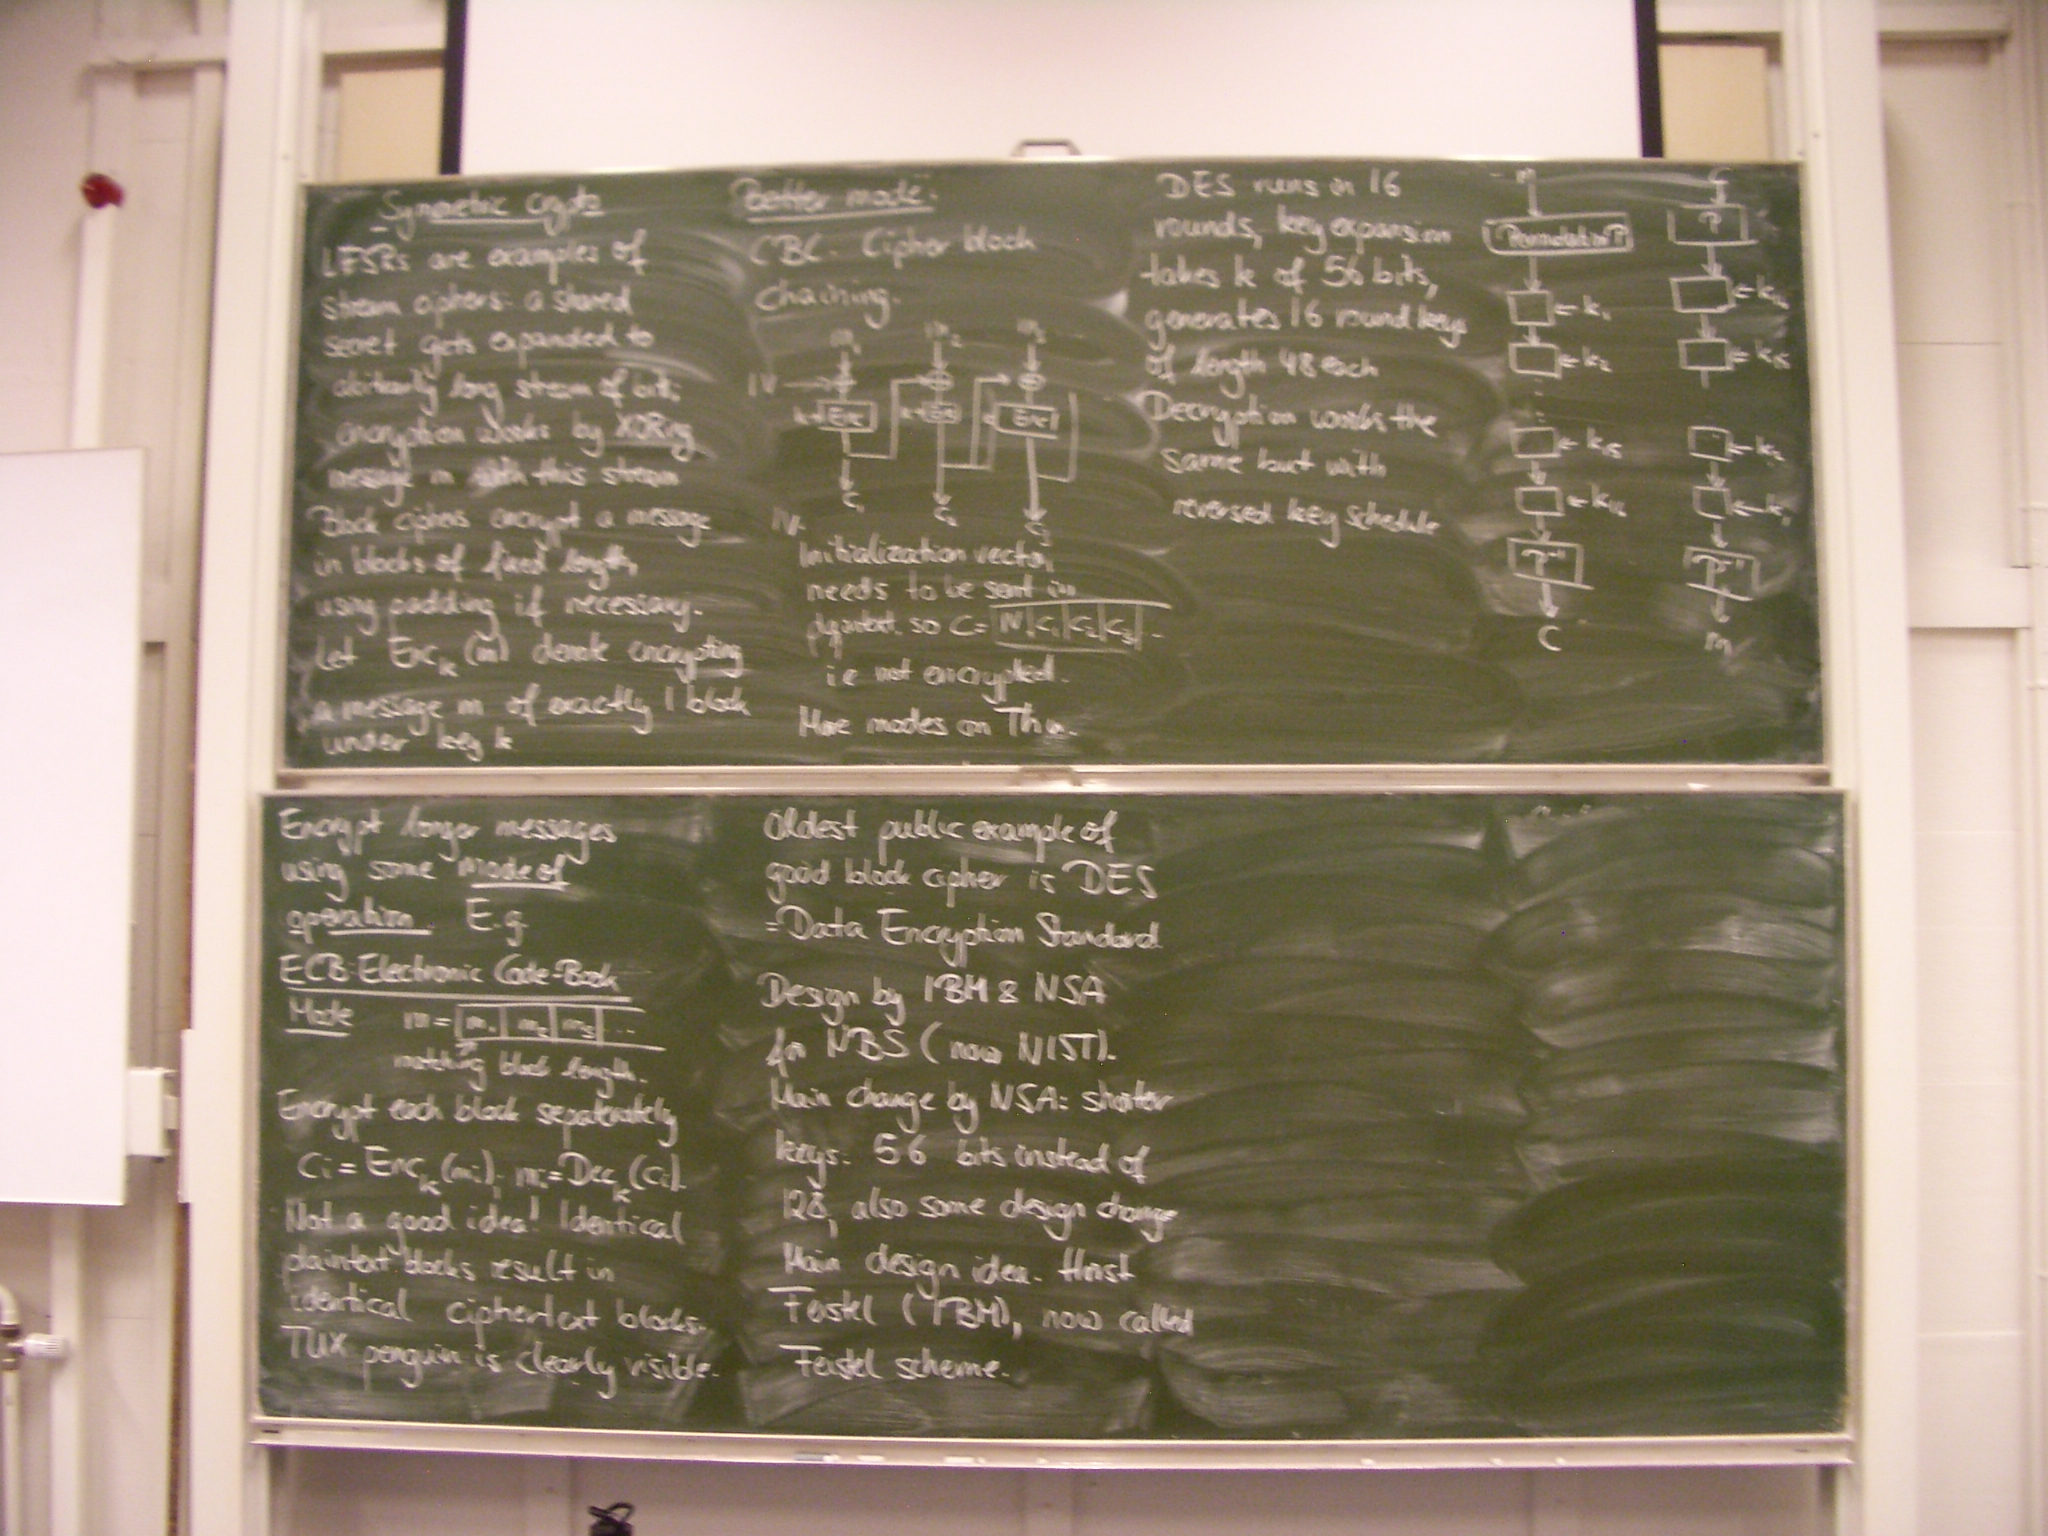 Symmetric crypto
LFSRs are examples of
stream ciphers: a shared
secret gets expanded to
arbitrarily long stream of bits
encryption works by XORing
message m with this stream
Block ciphers encrypt a message
in blocks of fixed length,
using padding if necessary.
Let Enc_k (m) denote encrypting
a message m of exactly 1 block
under key k
Encrypt longer messages
using some mode of
operation. E.g
ECB: Electronic Code-Book
Mode m = | m₁ | m₂ | m₃ | ...
matching block length.
Encrypt each block separately
Ci = Enc_k (mi), mi = Dec_k (Ci).
Not a good idea! Identical
plaintext blocks result in
identical ciphertext blocks.
TUX penguin is clearly visible.
better mode:
CBC: Cipher block
chaining.
m₁ m₂ m₃
IV
k → Enc k → Enc Enc
C₁ C₂ C₃
IV:
Initialization vector,
needs to be sent in
plaintext, so C = | IV | C₁ | C₂ | C₃ | ..
i.e not encrypted.
More modes on Thu.
Oldest public example of
good block cipher is DES
= Data Encryption Standard
Design by IBM & NSA
for NBS (now NIST).
Main change by NSA: shorter
keys: 56 bits instead of
128, also some design change
Main design idea: Horst
Feistel (IBM), now called
Feistel scheme.
DES runs in 16
rounds, key expansion
takes k of 56 bits,
generates 16 round keys
of length 48 each
Decryption works the
same but with
reversed key schedule
m
Permutation P
← k₁
← k₂
← k₁₅
← k₁₆
P⁻¹
C
C
P
← k₁₆
← k₁₅
← k₂
← k₁
P⁻¹
m